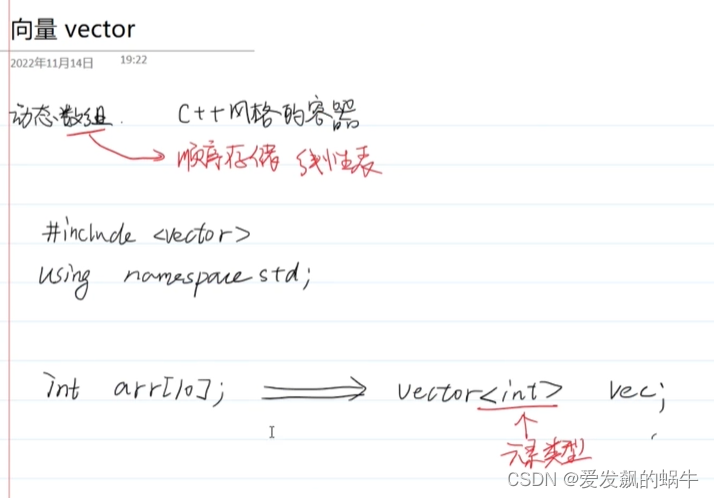 向量 vector
2022年11月14日 19:22
动态数组. C++风格的容器
顺序存储 线性表
#include <vector>
using namespace std;
int arr[10]; vector<int> vec;
元素类型
CSDN @爱发飙的蜗牛